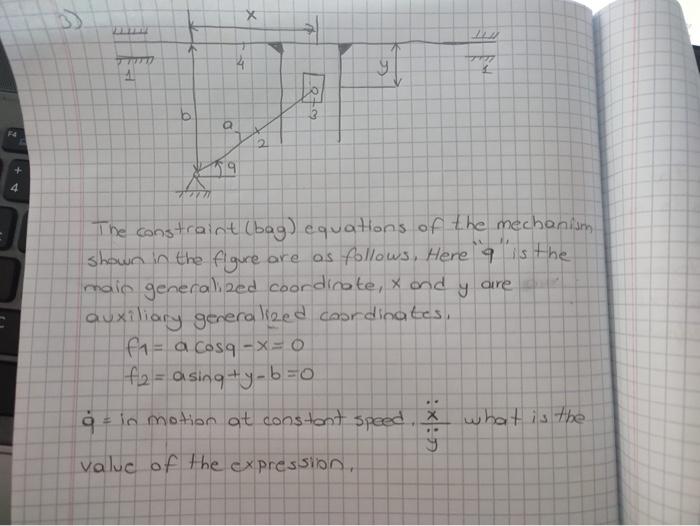 3)
x
1
4
y
1
b
3
a
2
q
The constraint (bag) equations of the mechanism
shown in the figure are as follows. Here "q" is the
main generalized coordinate, x and y are
auxiliary generalized coordinates.
f1 = a cosq - x = 0
f2 = asinq + y - b = 0
q̇ = in motion at constant speed. ẍ/ÿ what is the
value of the expression.
F4
+
4